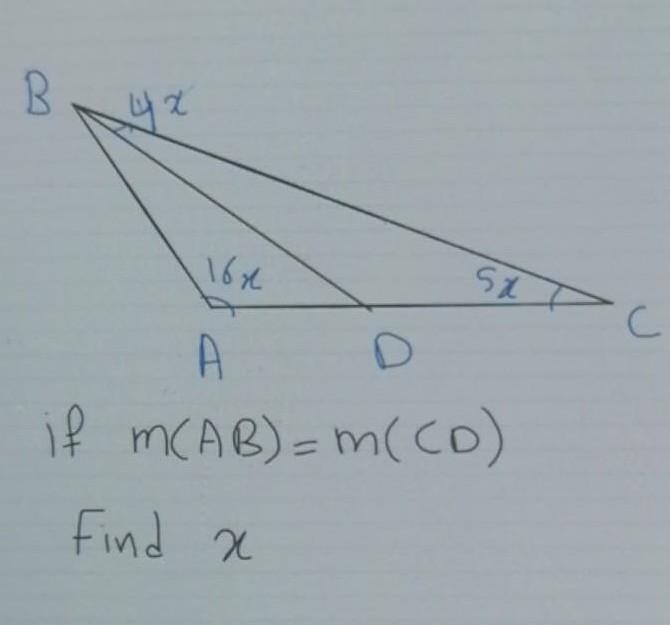 B 4x
16x 5x
A D C
if m(AB) = m(CD)
Find x